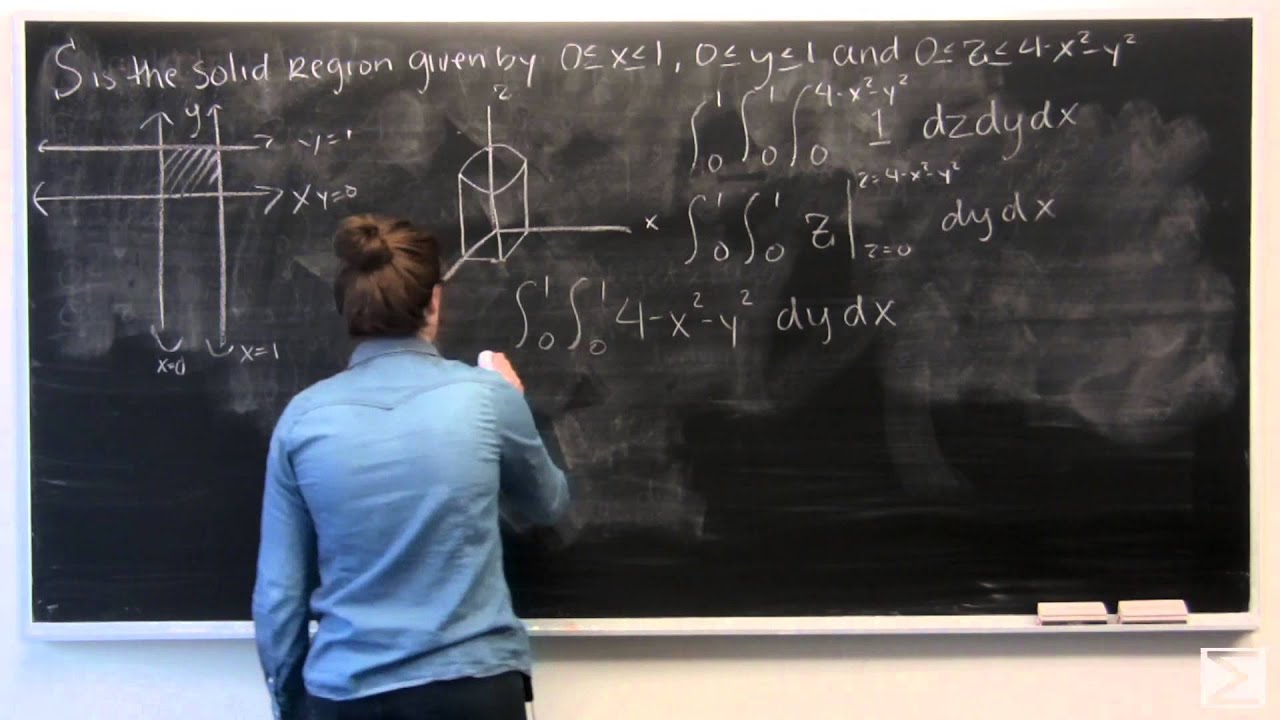 S is the solid region given by 0≤x≤1, 0≤y≤1 and 0≤z≤4-x²-y²
y
y=1
x y=0
x=0
x=1
z
x
∫₀¹ ∫₀¹ ∫₀^(4-x²-y²) 1 dzdydx
∫₀¹ ∫₀¹ z |_(z=0)^(z=4-x²-y²) dydx
∫₀¹ ∫₀¹ 4-x²-y² dydx
Σ